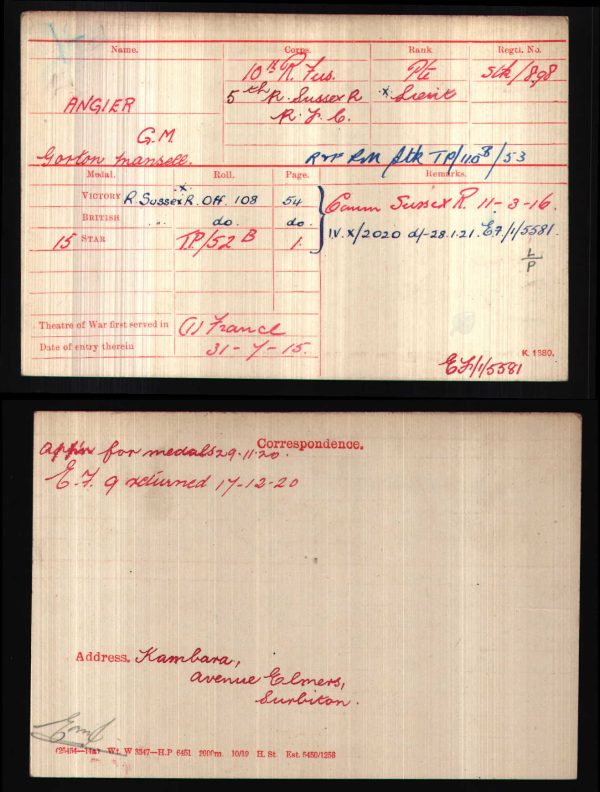 Name. Corps. Rank Regtl. No.
10th R. Fus. Pte Stk/898
ANGIER 5th R. Sussex R x Lieut
G.M. R.F.C.
Gorton Mansell. R M Stk TP/110B/53
Medal. Roll. Page. Remarks.
VICTORY R. Sussex R. Off. 108 54 Comm Sussex R. 11-3-16.
BRITISH " do. do.
15 STAR TP/52 B 1. IV.X/2020 d/-28.1.21. EF/1/5581.
L/P
Theatre of War first served in (1) France
Date of entry therein 31-7-15.
K. 1380.
EF/1/5581
Correspondence.
App'n for medals 29.11.20.
E.F. 9 returned 17-12-20
Address. Kambara,
Avenue Elmers,
Surbiton.
(25454—14a) Wt. W 3347—H.P 6451 2000m. 10/19 H. St. Est. 5450/1256